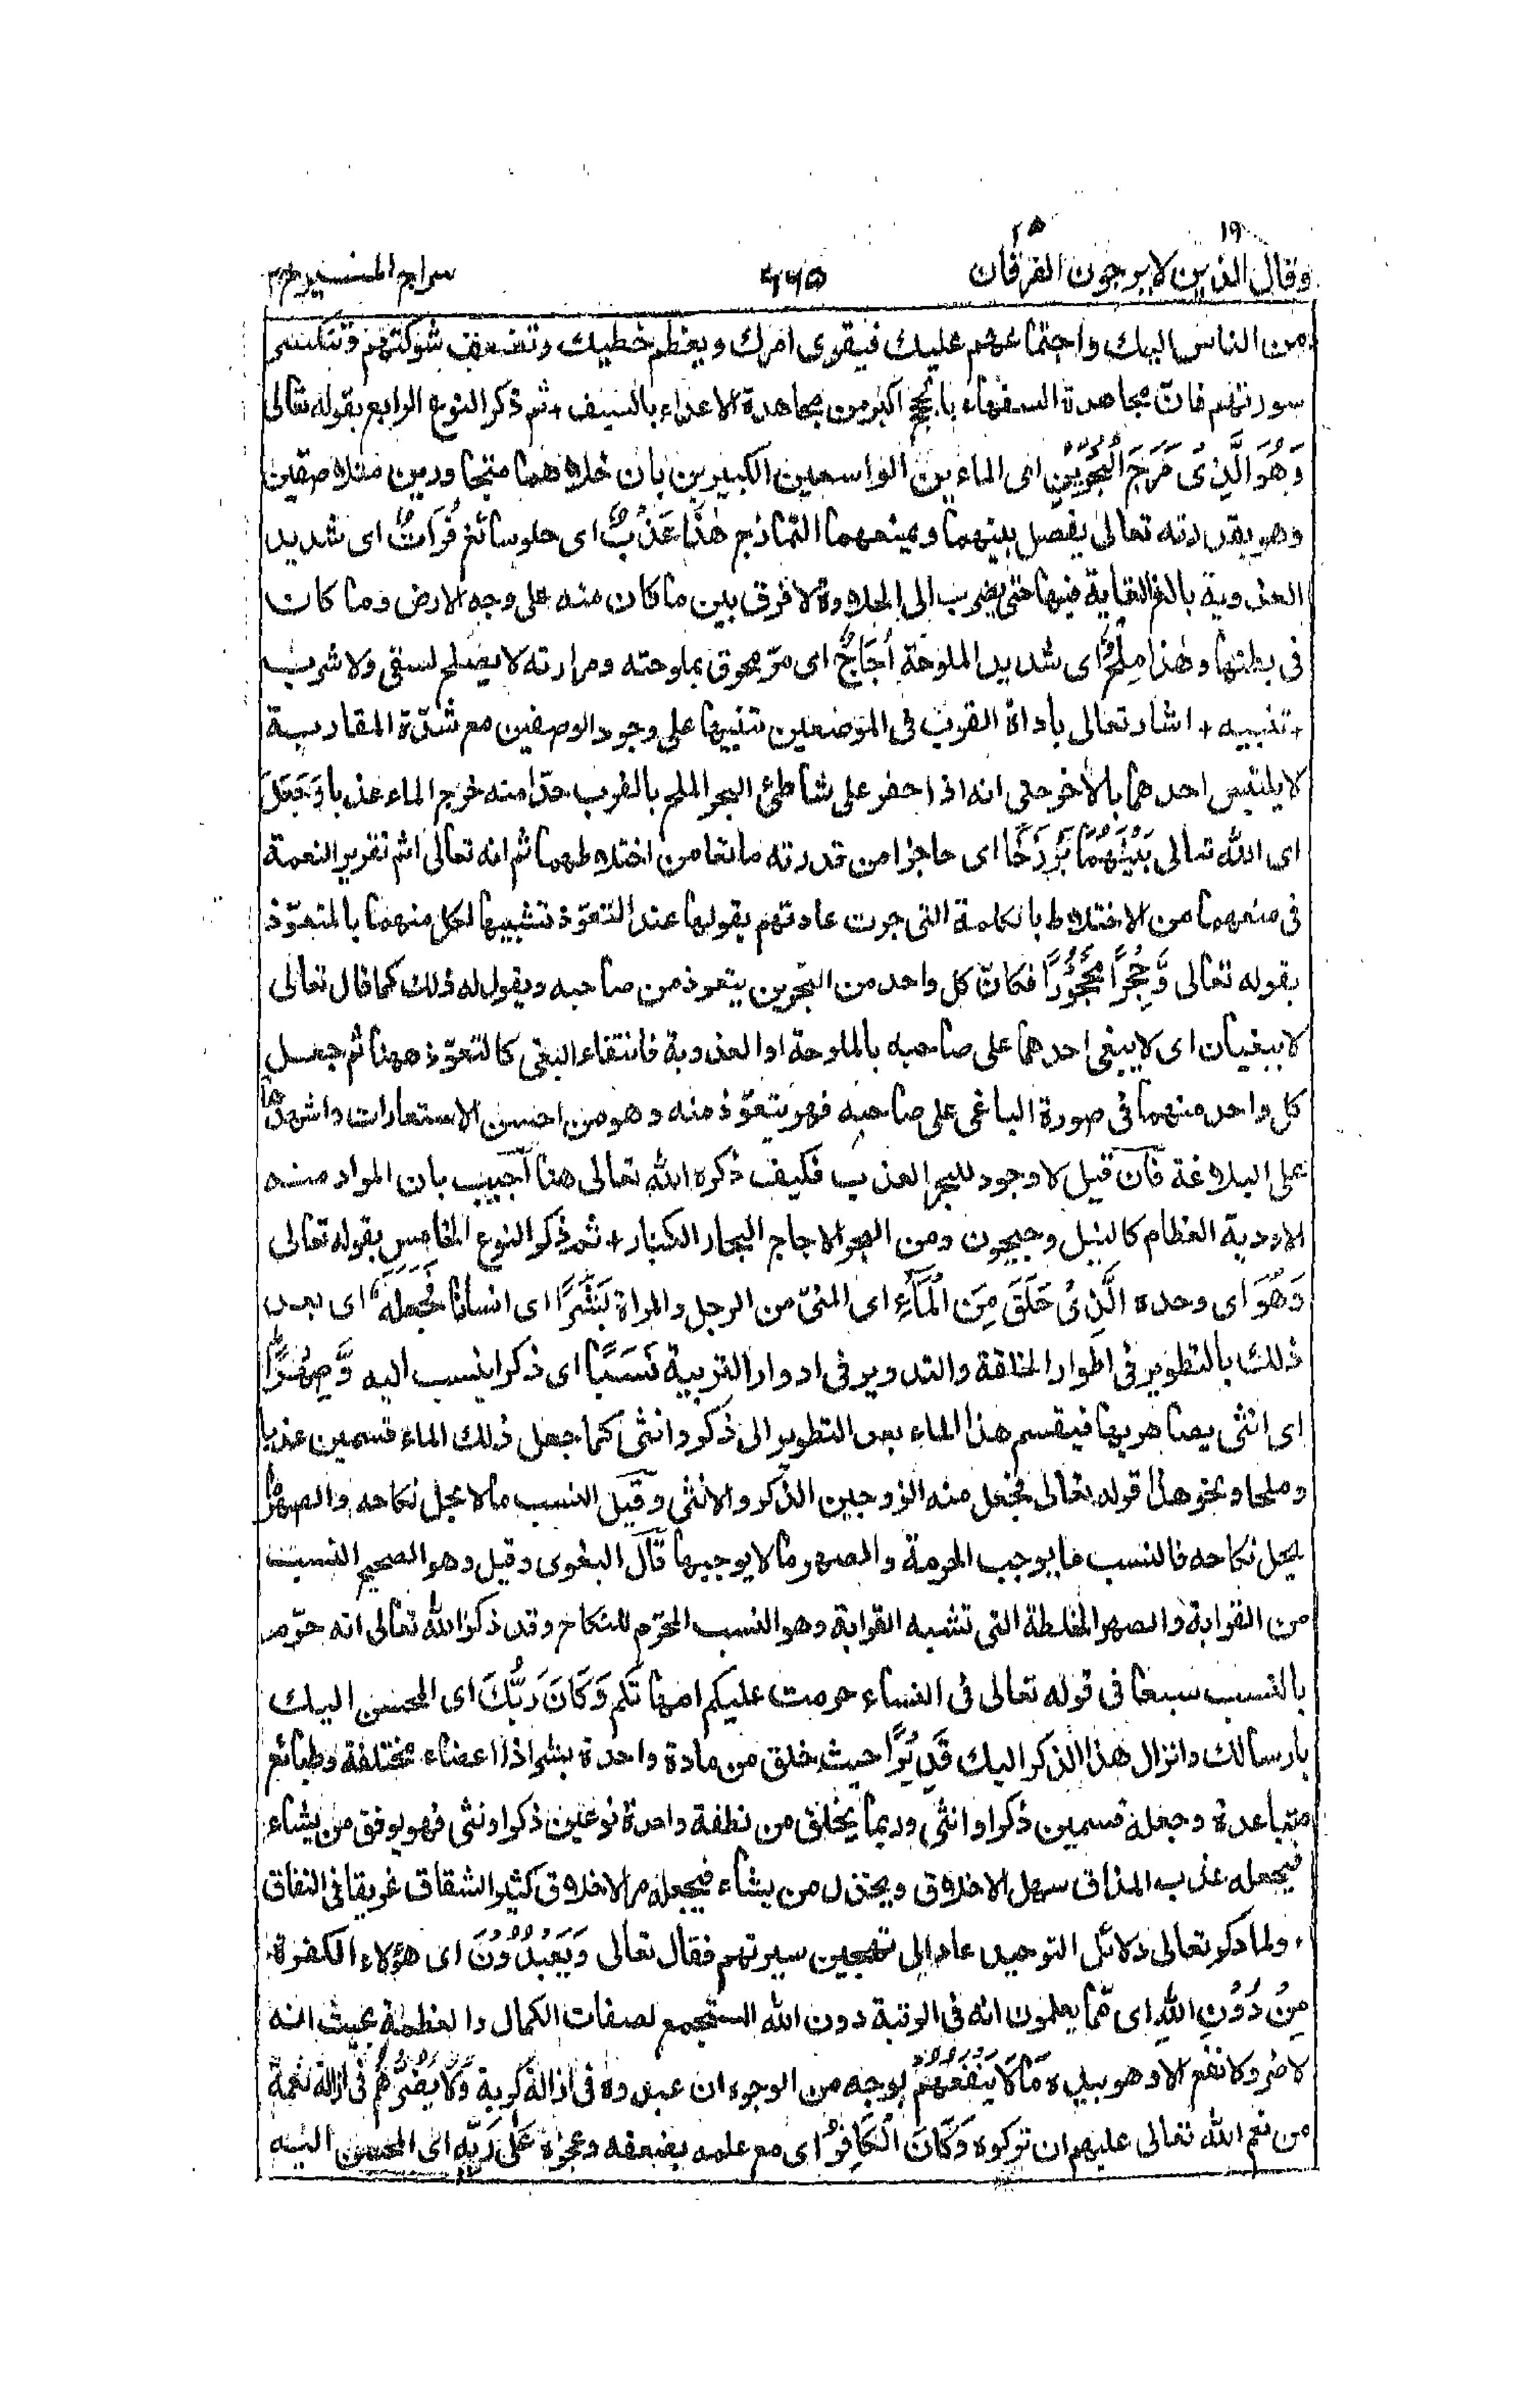 ١٩ ٢٥
وقال الذين لا يرجون الفرقان ٦٦٥ سراج المنير ج٣
من الناس اليك واجتماعهم عليك فيقوى امرك ويعظم خطبك وتضعف شوكتهم وتنكسر
سورتهم فانّ مجاهدة السفهاء بالحجج اكبر من مجاهدة الاعداء بالسيف + ثم ذكر النوع الرابع بقوله تعالى
وَهُوَ الَّذِىْ مَرَجَ الْبَحْرَيْنِ اى الماءين الواسعين الكبيرين بان خلاهما متجاورين متلاصقين
وهو بقدرته تعالى يفصل بينهما ويمنعهما التمازج هٰذَا عَذْبٌ اى حلو سائغ فُرَاتٌ اى شديد
العذوبة بالغ الغاية فيها حتى يضرب الى الحلاوة لا فرق بين ما كان منه على وجه الارض وما كان
فى بطنها وهٰذا مِلْحٌ اى شديد الملوحة أُجَاجٌ اى مرّ محرق بملوحته ومرارته لا يصلح لسقى ولا شرب
+ تنبيه + اشار تعالى باداة القرب فى الموضعين تنبيها على وجود الوصفين مع شدّة المقاربة
لا يلتبس احدهما بالآخر حتى انه اذا حفر على شاطئ البحر الملح بالقرب جدّا منه خرج الماء عذبا وَجَعَلَ
اى الله تعالى بَيْنَهُمَا بَرْزَخًا اى حاجزا من قدرته مانعا من اختلاطهما ثم انه تعالى اتم تقرير النعمة
فى منعهما من الاختلاط بالكلمة التى جرت عادتهم بقولها عند التعوّذ تشبيها لكل منهما بالمتعوّذ
بقوله تعالى وَّحِجْرًا مَّحْجُوْرًا فكانّ كل واحد من البحرين يتعوذ من صاحبه ويقول له ذلك كما قال تعالى
لا يبغيان اى لا يبغى احدهما على صاحبه بالملوحة او العذوبة فانتفاء البغى كالتعوّذ ههنا ثم جعل
كل واحد منهما فى صورة الباغى على صاحبه فهو يتعوّذ منه وهو من احسن الاستعارات واشهدها
على البلاغة فان قيل لا وجود للبحر العذب فكيف ذكره الله تعالى هنا اجيب بان المراد منه
الاودية العظام كالنيل وجيحون ومن البحر الاجاج البحار الكبار + ثم ذكر النوع الخامس بقوله تعالى
وَهُوَ اى وحده الَّذِىْ خَلَقَ مِنَ الْمَآءِ اى المنىّ من الرجل والمراة بَشَرًا اى انسانا فَجَعَلَهٗ اى بعد
ذلك بالتطوير فى اطوار الخلقة والتدوير فى ادوار التربية نَسَبًا اى ذكرا ينسب اليه وَّصِهْرًا
اى انثى يصاهر بها فيقسم هذا الماء بعد التطوير الى ذكر وانثى كما جعل ذلك الماء قسمين عذبا
وملحا ونحو هذا قوله تعالى فجعل منه الزوجين الذكر والانثى وقيل النسب ما لا يحل نكاحه والصهر ما
يحل نكاحه فالنسب ما يوجب الحرمة والصهر ما لا يوجبها قال البغوى وقيل وهو الصحيح النسب
من القرابة والصهر الخلطة التى تشبه القرابة وهو النسب المحرّم للنكاح وقد ذكر الله تعالى انه حرّم
بالنسب سبعا فى قوله تعالى فى النساء حرمت عليكم امهاتكم وَكَانَ رَبُّكَ اى المحسن اليك
بارسالك وانزال هذا الذكر اليك قَدِيْرًا حيث خلق من مادة واحدة بشرا ذا اعضاء مختلفة وطبائع
متباعدة وجعله قسمين ذكرا وانثى وربما يخلق من نطفة واحدة نوعين ذكرا ونثى فهو يوفق من يشاء
فيجعله عذب المذاق سهل الاخلاق ويخذل من يشاء فيجعله مر الاخلاق كثير الشقاق غريقا فى النفاق
+ ولما ذكر تعالى دلائل التوحيد عاد الى تهجين سيرتهم فقال تعالى وَيَعْبُدُوْنَ اى هؤلاء الكفرة
مِنْ دُوْنِ اللهِ اى ممّا يعلمون انه فى الرتبة دون الله المستجمع لصفات الكمال والعظمة بحيث انه
لا ضر ولا نفع الا وهو بيده مَا لَا يَنْفَعُهُمْ بوجه من الوجوه ان عبدوه فى ازالة كربة وَلَا يَضُرُّهُمْ فى ازالة نعمة
من نعم الله تعالى عليهم ان تركوه وَكَانَ الْكَافِرُ اى مع علمه بضعفه وعجزه عَلٰى رَبِّهٖ اى المحسن اليه